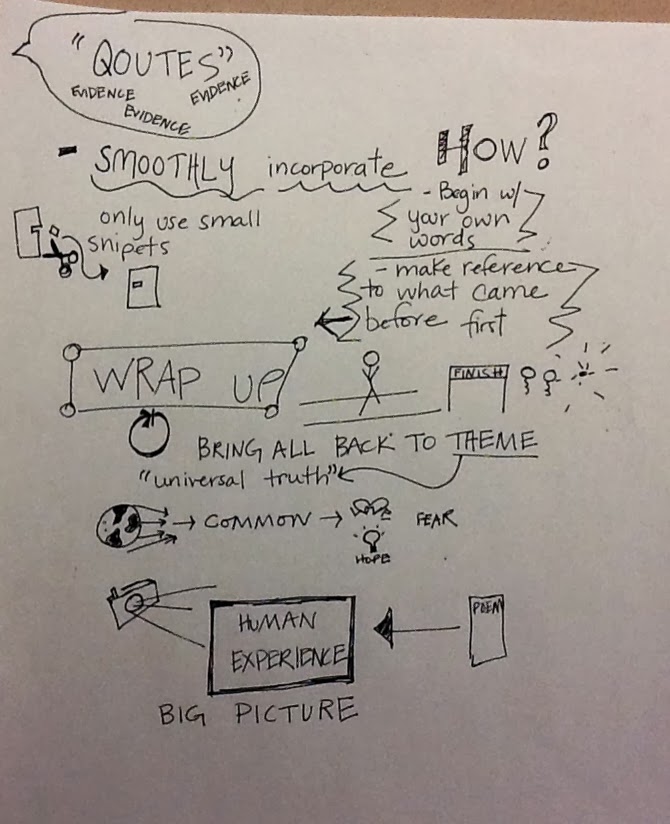 "QOUTES"
EVIDENCE
EVIDENCE
EVIDENCE
- SMOOTHLY incorporate
only use small
snipets
HOW?
- Begin w/
your own
words
- make reference
to what came
before first
WRAP UP
FINISH
BRING ALL BACK TO THEME
"universal truth"
COMMON
FEAR
HOPE
HUMAN
EXPERIENCE
POEM
BIG PICTURE